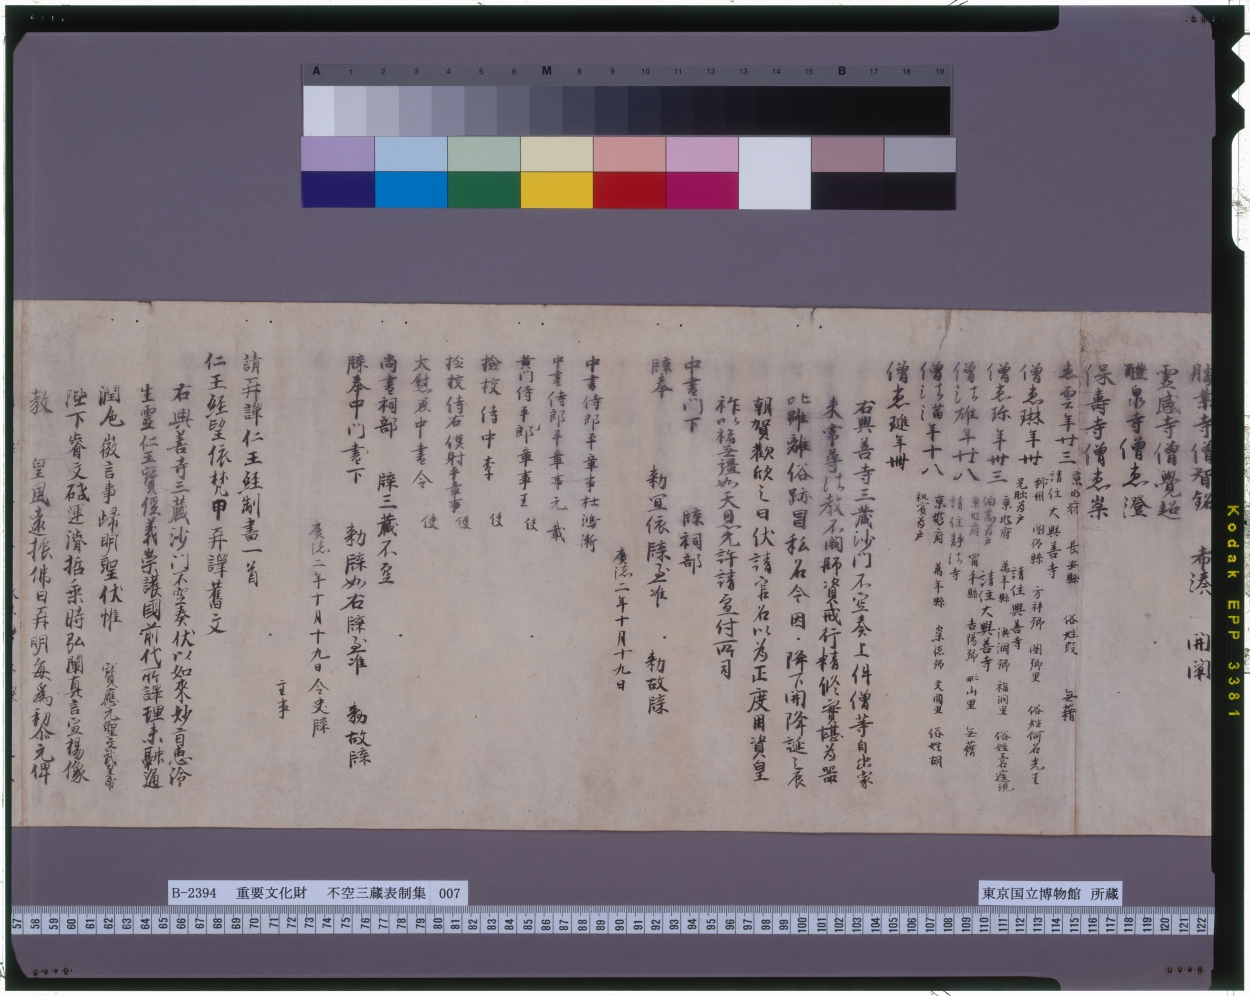 A 1 2 3 4 5 6 M 8 9 10 11 12 13 14 15 B 17 18 19
霊感寺僧覺超
醴泉寺僧恵澄
保壽寺僧恵崇
恵雲年廿三 京兆府 長安縣 俗姓段 無籍
請住大興善寺
僧恵琳年卅 虢州 閿郷縣 方祥郷 閿郷里 俗姓何名光王
兄毗為戸 請住興善寺
僧恵珍年卅三 京兆府 萬年縣 洪洞郷 福潤里 俗姓王名庭現
伯高為戸 請住大興善寺
僧法雄年廿八 京兆府 富平縣 古陽郷 毗山里 無籍
請住静法寺
僧法満年十八 京兆府 萬年縣 崇德郷 文圓里 俗姓胡
祖賓為戸
僧恵璡年卌
右興善寺三蔵沙門不空奏上件僧等自出家
来常尋法教不闕師資戒行精修實堪為器
比雖離俗跡冒私名今因 降下開降誕之辰
朝賀歡欣之日伏請官名以為正度用資皇
祚以福無疆如天恩允許請宣付所司
中書門下 牒祠部
牒奉 勅宣依牒至准 勅故牒
廣徳二年十月十九日
中書侍郎平章事杜鴻漸
中書侍郎平章事元載
黄門侍郎平章事王 使
撿校侍中李 使
撿校侍右僕射平章事 使
大尉兼中書令 使
尚書祠部 牒三蔵不空
牒奉中門書下 勅牒如右牒至准 勅故牒
廣徳二年十月十九日令史牒
主事
請再譯仁王経制書一首
仁王経望依梵甲再譯舊文
右興善寺三蔵沙門不空奏伏以如来妙旨恵洽
生靈仁王寳經義崇護國前代所譯理未融通
潤色微言事歸明聖伏惟 寳應元聖文武皇帝
陛下睿文啓運濬哲乗時弘闡真言宣揚像
教 皇風遠振佛日再明毎為黎元俾
B-2394 重要文化財 不空三蔵表制集 007
東京国立博物館 所蔵
57 58 59 60 61 62 63 64 65 66 67 68 69 70 71 72 73 74 75 76 77 78 79 80 81 82 83 84 85 86 87 88 89 90 91 92 93 94 95 96 97 98 99 100 101 102 103 104 105 106 107 108 109 110 111 112 113 114 115 116 117 118 119 120 121 122
Kodak EPP 3381